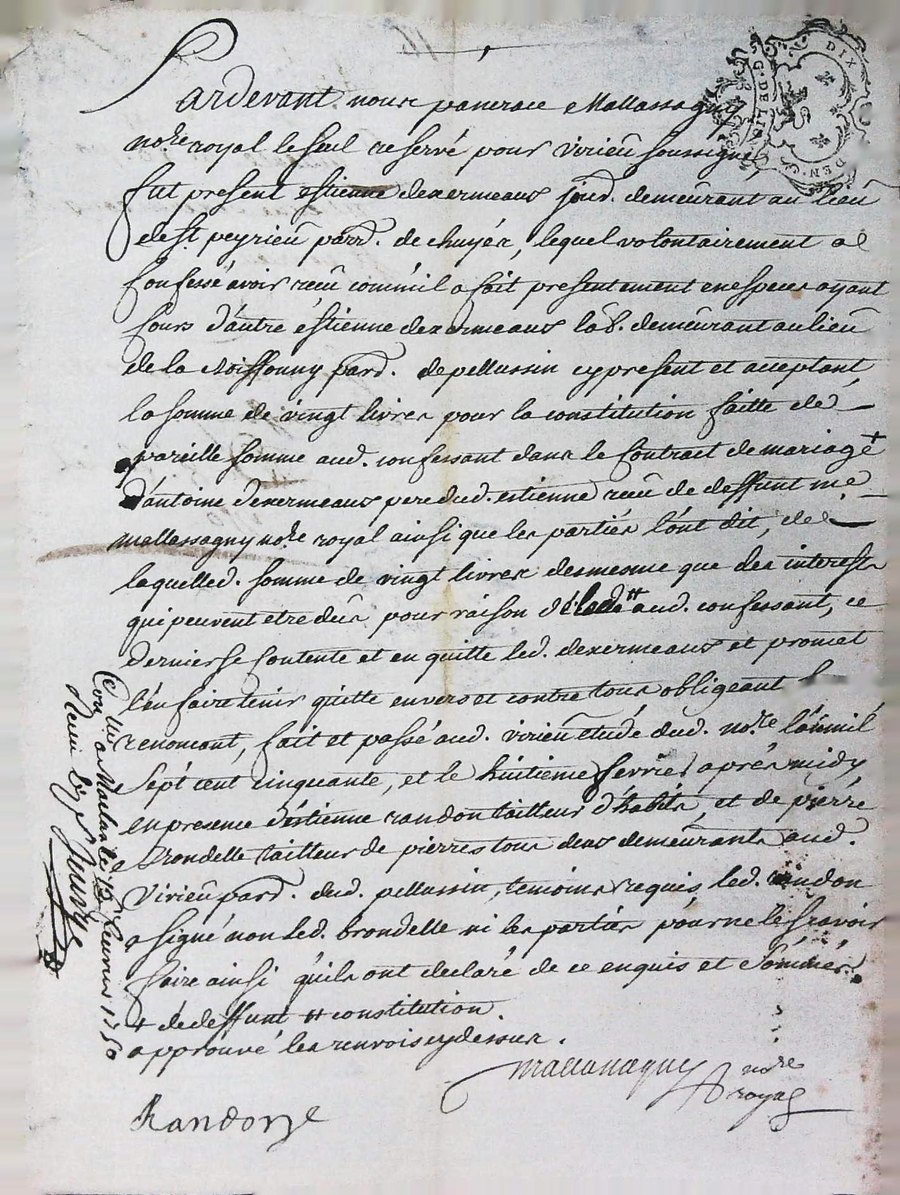 Pardevant nous pancrace Mallassagny
no.re royal le seul reservé pour virieu soussigné
fut present estienne dexermeaux jourd. demeurant au lieu
de st peyrieu parr. de chuyer, lequel volontairement a
Confessé avoir receu comm'il a fait presentement en especes ayant
Cours d'autre éstienne dexermeaux lab. demeurant au lieu
de la par. de pellussin cy present et acceptant
la somme de vingt livres pour la constitution faitte de
pareille somme aud. confessant dans le Contract de mariage +
d'antoine dexermeaux pere dud. estienne receu de deffunt me
mallassagny no.re royal ainsi que les parties l'ont dit, de
laquelled. somme de vingt livres de mesme que des interests
qui peuvent etre deus pour raison de lade. # aud. confessant, ce
dernier se Contente et en quitte led. dexermeaux et promet
l'en faire tenir quitte envers et contre tous obligeant
renonçant, fait et passé aud. virieu etude dud. no.re l'an mil
sept cent cinquante, et le huitieme fevrier après midy
en presence d'éstienne randon tailleur d'habits, et de pierre
brondelle tailleur de pierres tous deux demeurants aud.
virieu par. dud. pellussin, temoins requis, led. randon
a signé non led. brondelle ni les parties pour ne le sçavoir
faire ainsi qu'ils ont declaré de ce enquis et sommés.
+ de deffunt # constitution.
approuvé les renvois cy dessus.
Mallassagny no.re
royal
Randon
Con.llé a Maclas le 13e fevrier 1750
Receu
G. DE LION
DIX
DEN.